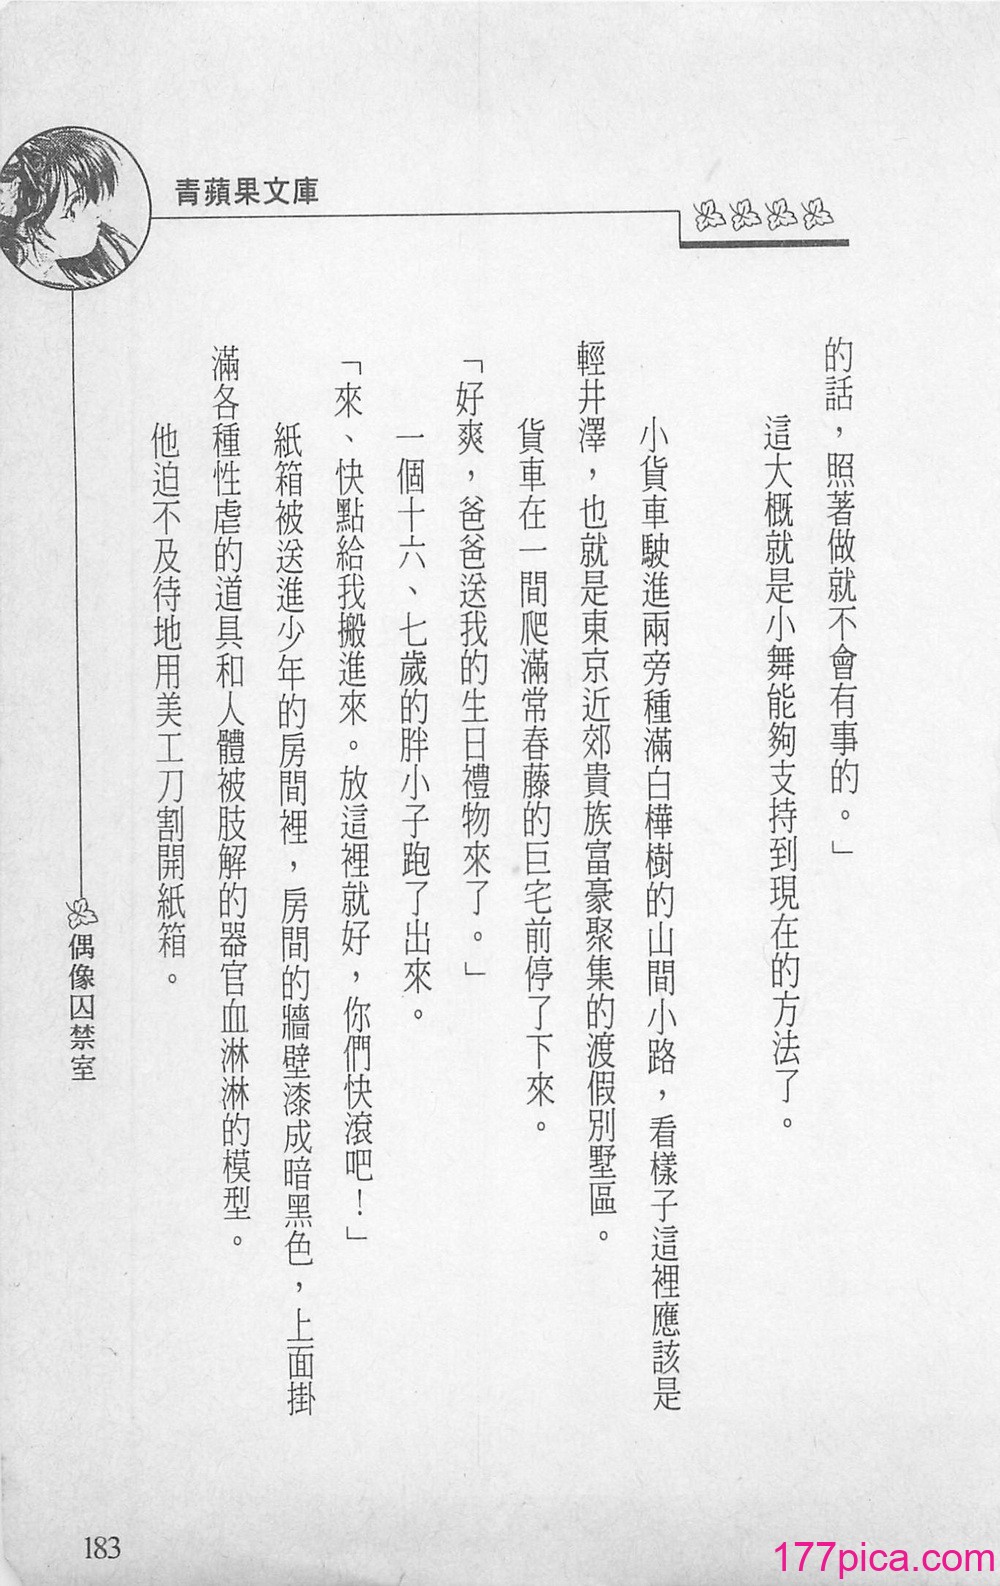 青蘋果文庫
的話，照著做就不會有事的。」
這大概就是小舞能夠支持到現在的方法了。
小貨車駛進兩旁種滿白樺樹的山間小路，看樣子這裡應該是
輕井澤，也就是東京近郊貴族富豪聚集的渡假別墅區。
貨車在一間爬滿常春藤的巨宅前停了下來。
「好爽，爸爸送我的生日禮物來了。」
一個十六、七歲的胖小子跑了出來。
「來、快點給我搬進來。放這裡就好，你們快滾吧！」
紙箱被送進少年的房間裡，房間的牆壁漆成暗黑色，上面掛
滿各種性虐的道具和人體被肢解的器官血淋淋的模型。
他迫不及待地用美工刀割開紙箱。
偶像囚禁室
183
177pica.com